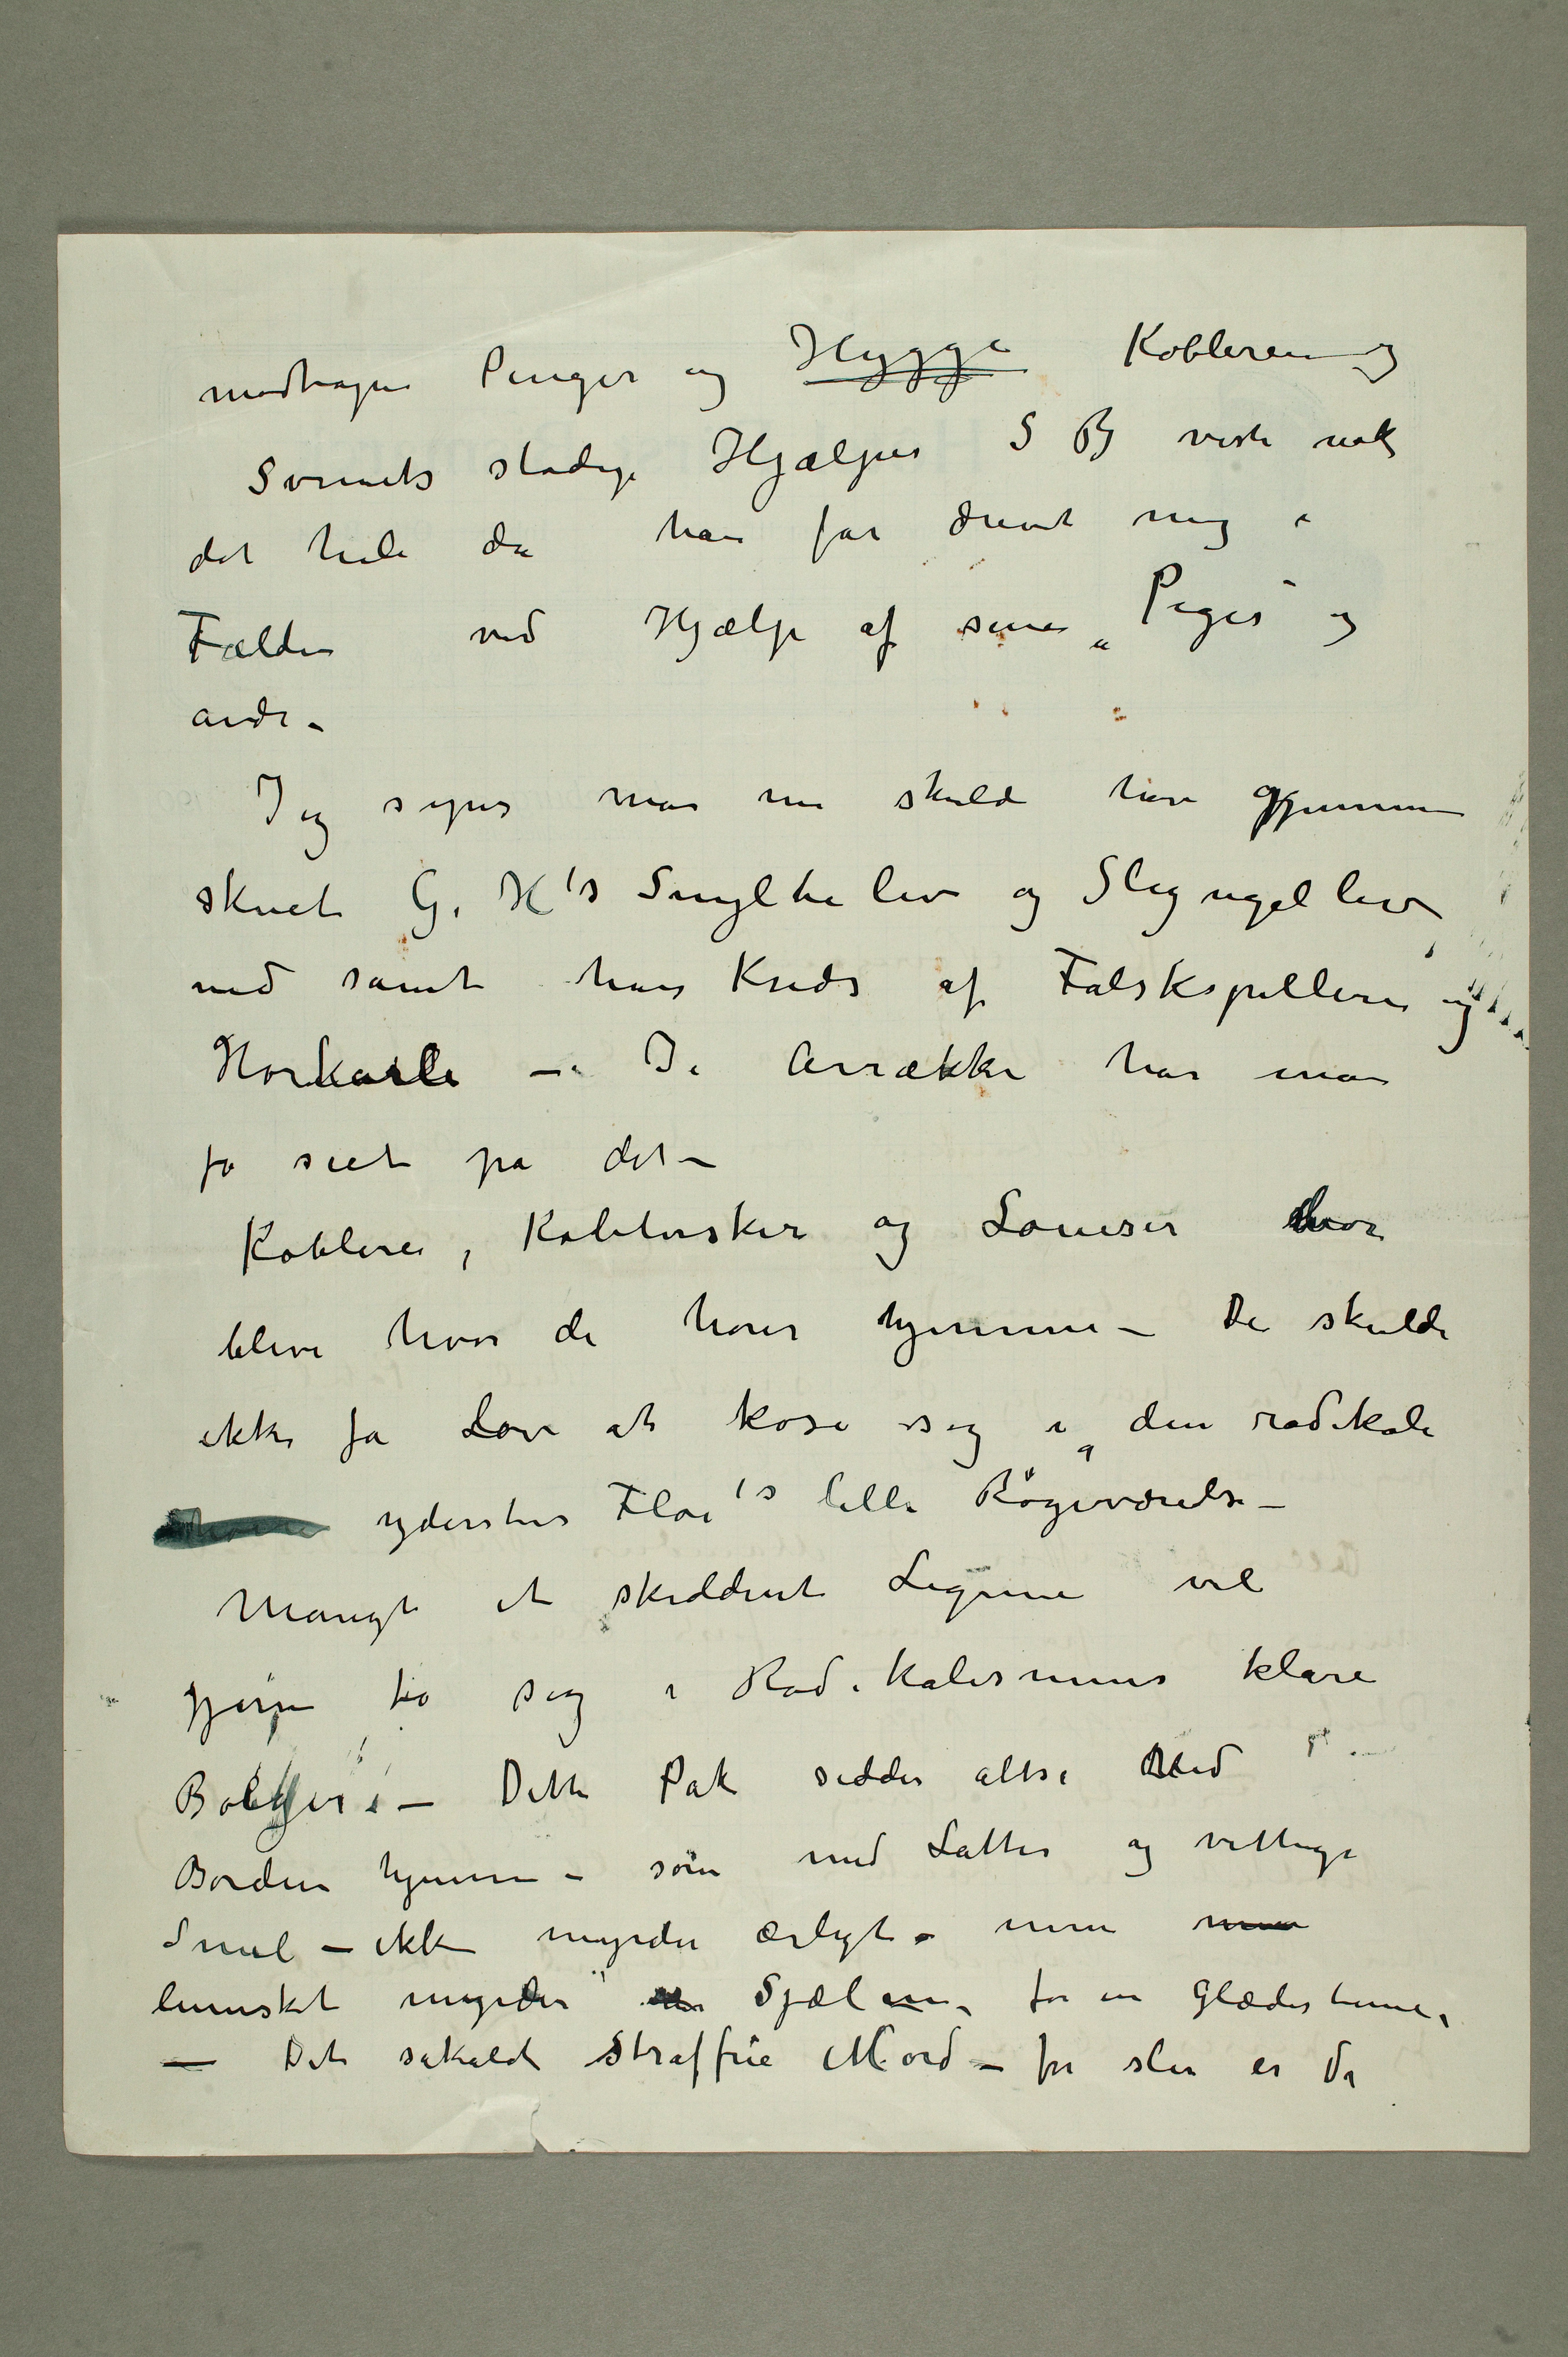 modtagne Penger og Hygge Kobleren og
Svinets stadige Hjælper S B viste nok
det hele da han før drevet mig i
Fælden ved Hjælp af sine „Piger“ og
andr –
Jeg synes man nu skulde have gjennem
skuet G. H's Snylteliv og Slyngelliv
med samt hans Kreds af Falskspillere og
Horkarle – I Årrække har man
jo seet på det –
Koblere, Koblersker og Louiser
blive hvor de hører hjemme – De skulde
ikke få Lov at kose sig i den radikale
yderstes Fløi's lille Røgeværelse –
Mangt et skiddent Legeme vil
gjerne to sig i Radikalismens klare
Bølger. – Dette Pak sidder altså ved
Borden hjemme – som med Latter og vittige
Smil – ikke myrder ærligt – men
lumsket myrder Sjælen, for en Glædes time,
– Det såkaldt straffrie Mord – for slår er da